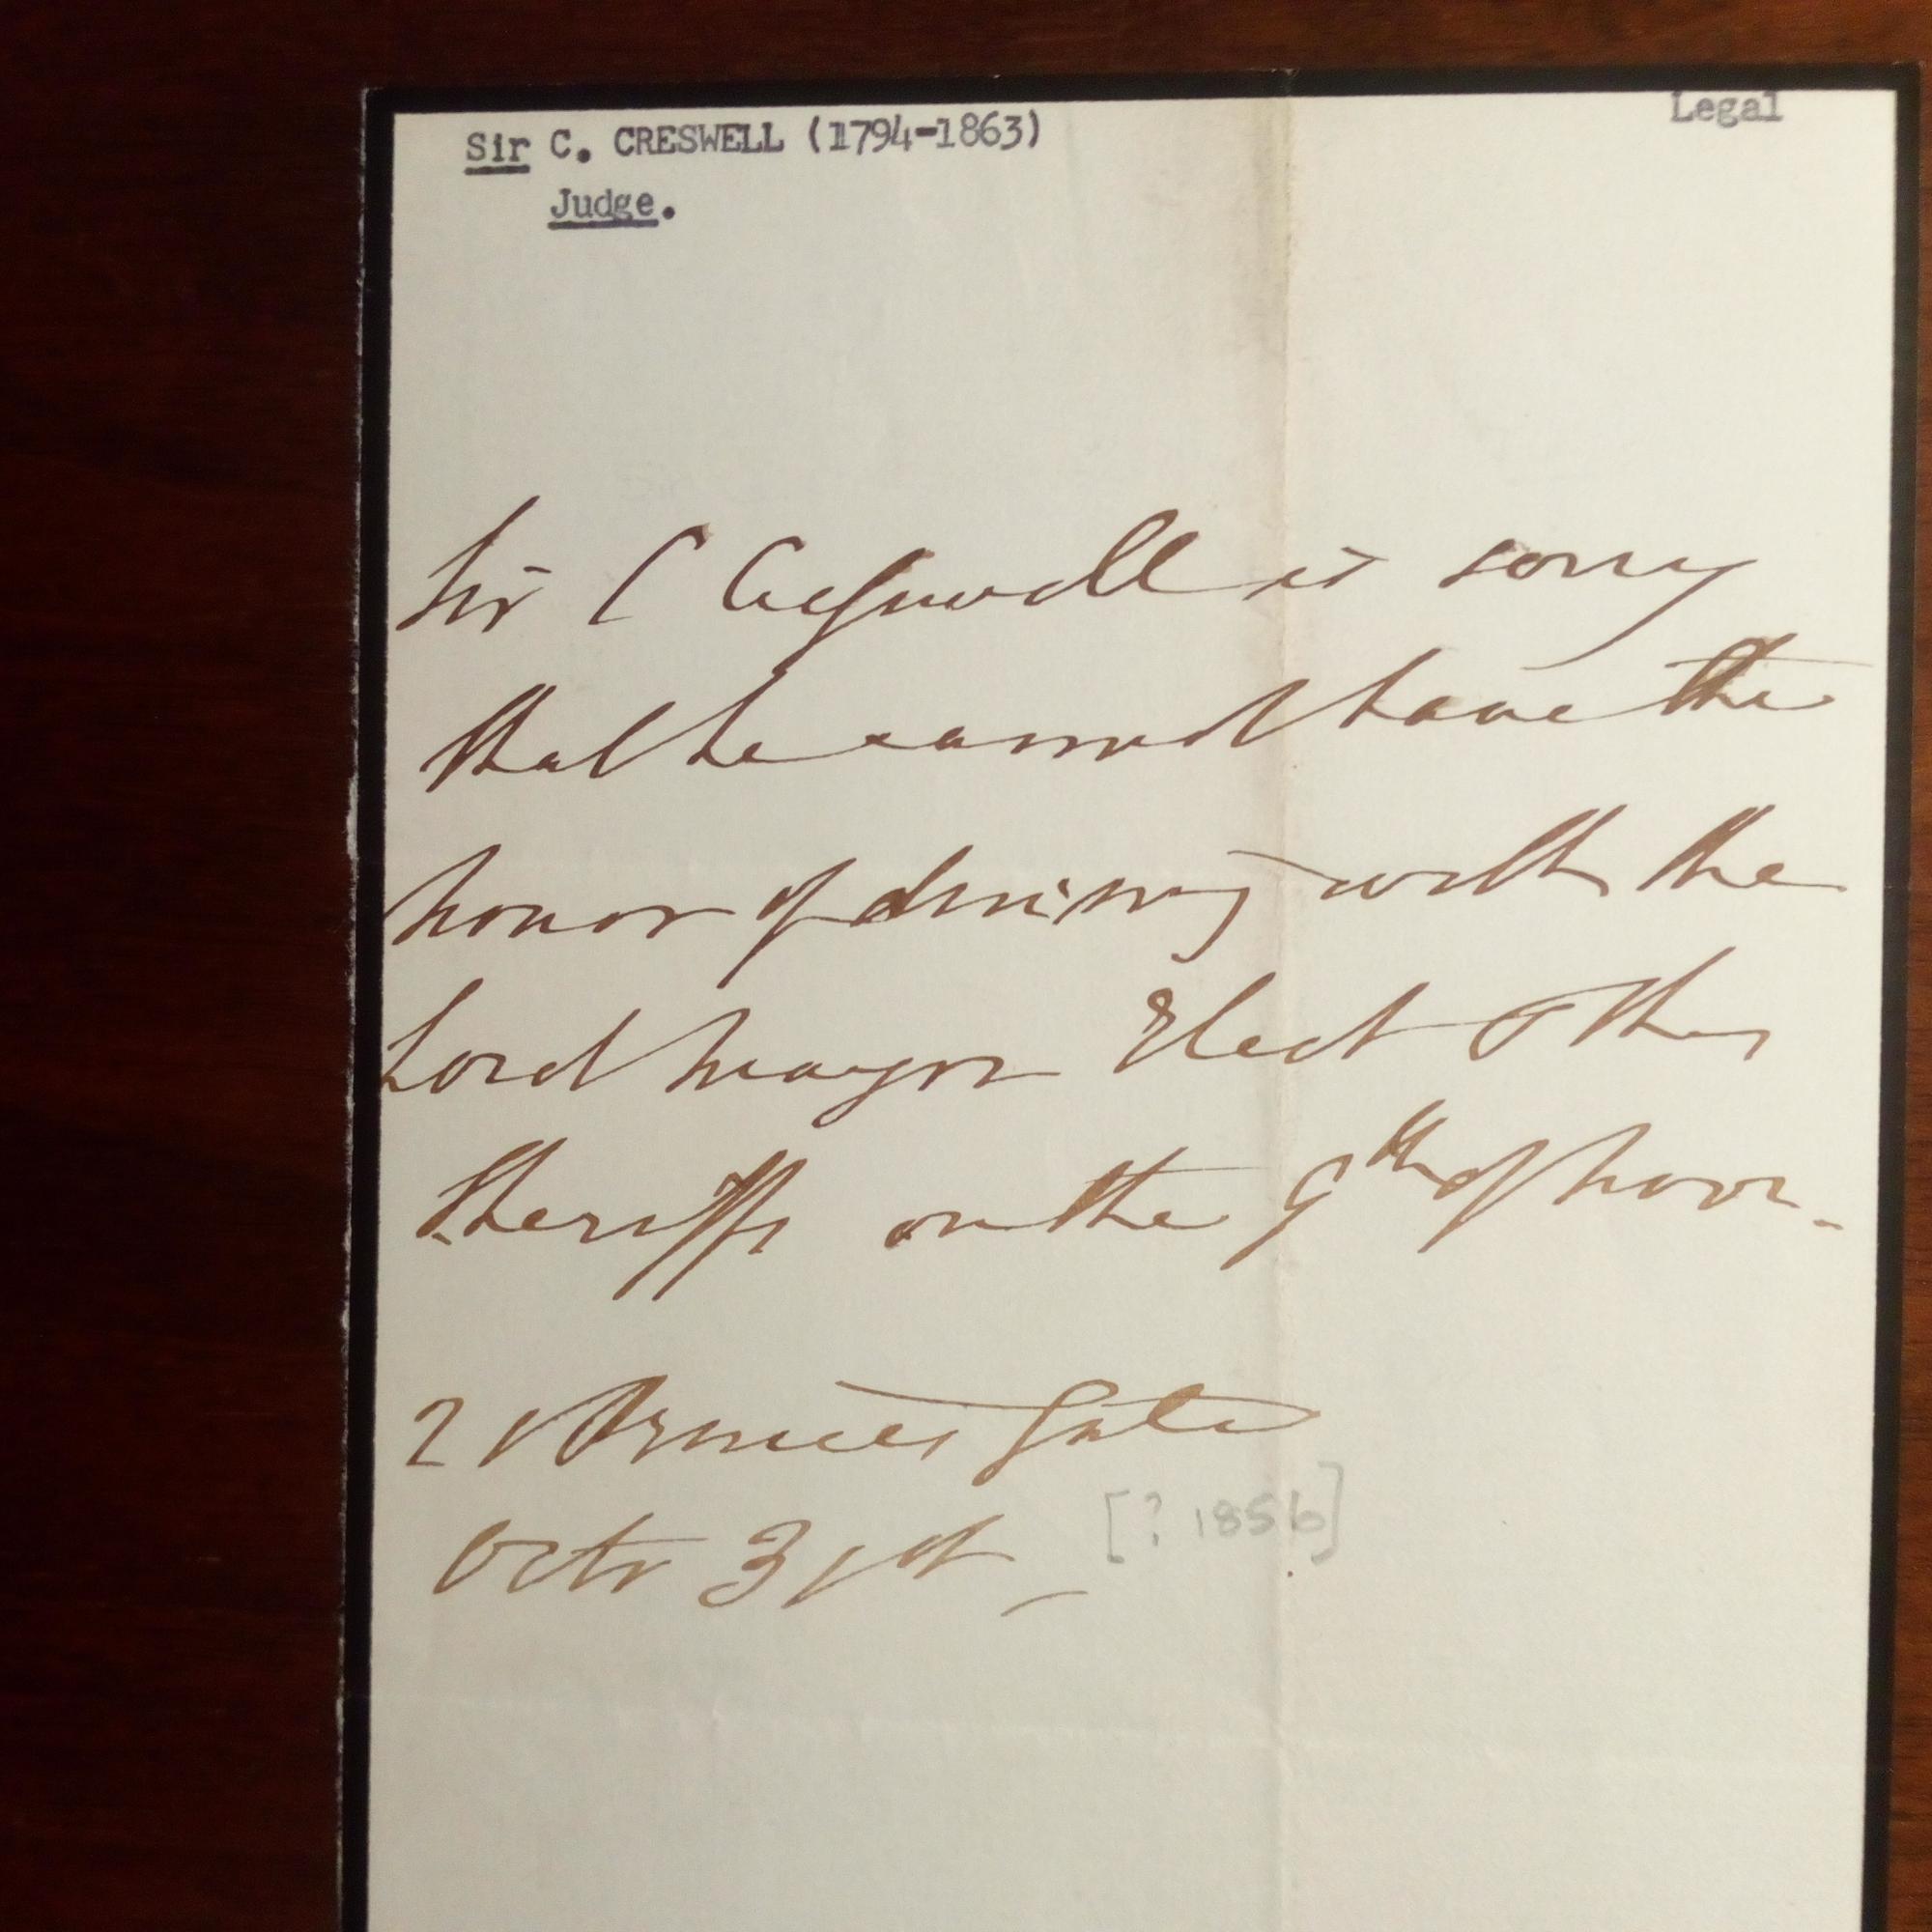 Legal
Sir C. CRESWELL (1794-1863)
Judge.
Sir C Cresswell is sorry
that he cannot have the
honor of dining with the
Lord Mayor Elect & the
Sheriffs on the 9th of Novr.
21 Princes Gate
Octr 31st
[? 1856]